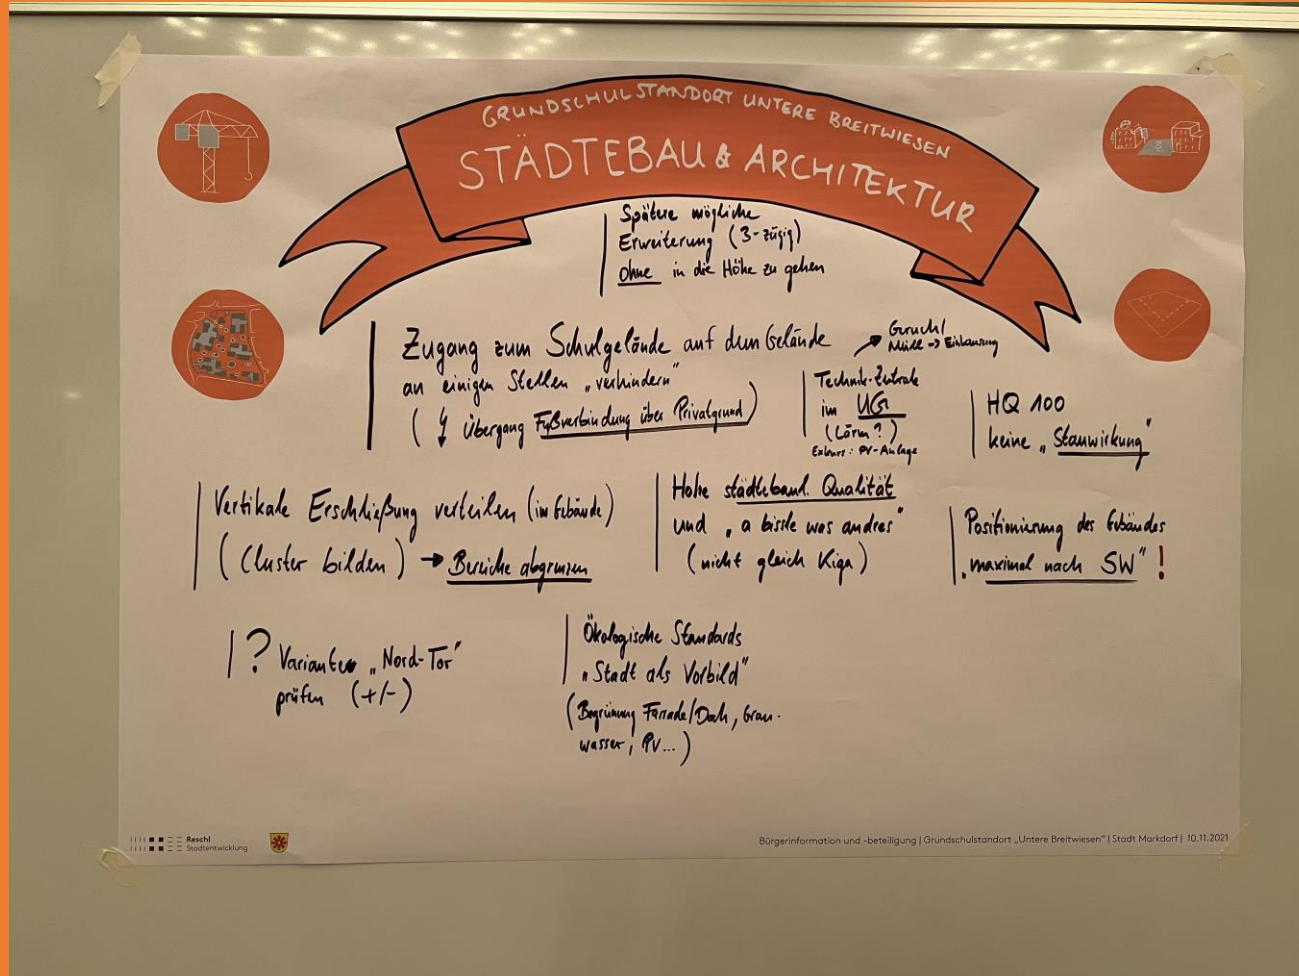 GRUNDSCHULSTANDORT UNTERE BREITWIESEN
STÄDTEBAU & ARCHITEKTUR
Spätere mögliche
Erweiterung (3-zügig)
ohne in die Höhe zu gehen
Zugang zum Schulgelände auf dem Gelände
an einigen Stellen „verhindern"
( Übergang Fußverbindung über Privatgrund)
Geruch/
Müll -> Einhausung
Technik-Zentrale
im UG
(Lärm?)
Exkurs: PV-Anlage
HQ 100
keine „Stauwirkung"
Vertikale Erschließung verteilen (im Gebäude)
(Cluster bilden) → Bereiche abgrenzen
Hohe städtebaul. Qualität
und „a bissle was andres"
(nicht gleich Kiga)
Positionierung des Gebäudes
„maximal nach SW" !
? Varianten „Nord-Tor"
prüfen (+/-)
Ökologische Standards
„Stadt als Vorbild"
(Begrünung Fassade/Dach, Grau-
wasser, PV...)
Reschl
Stadtentwicklung
Bürgerinformation und -beteiligung | Grundschulstandort „Untere Breitwiesen" | Stadt Markdorf | 10.11.2021